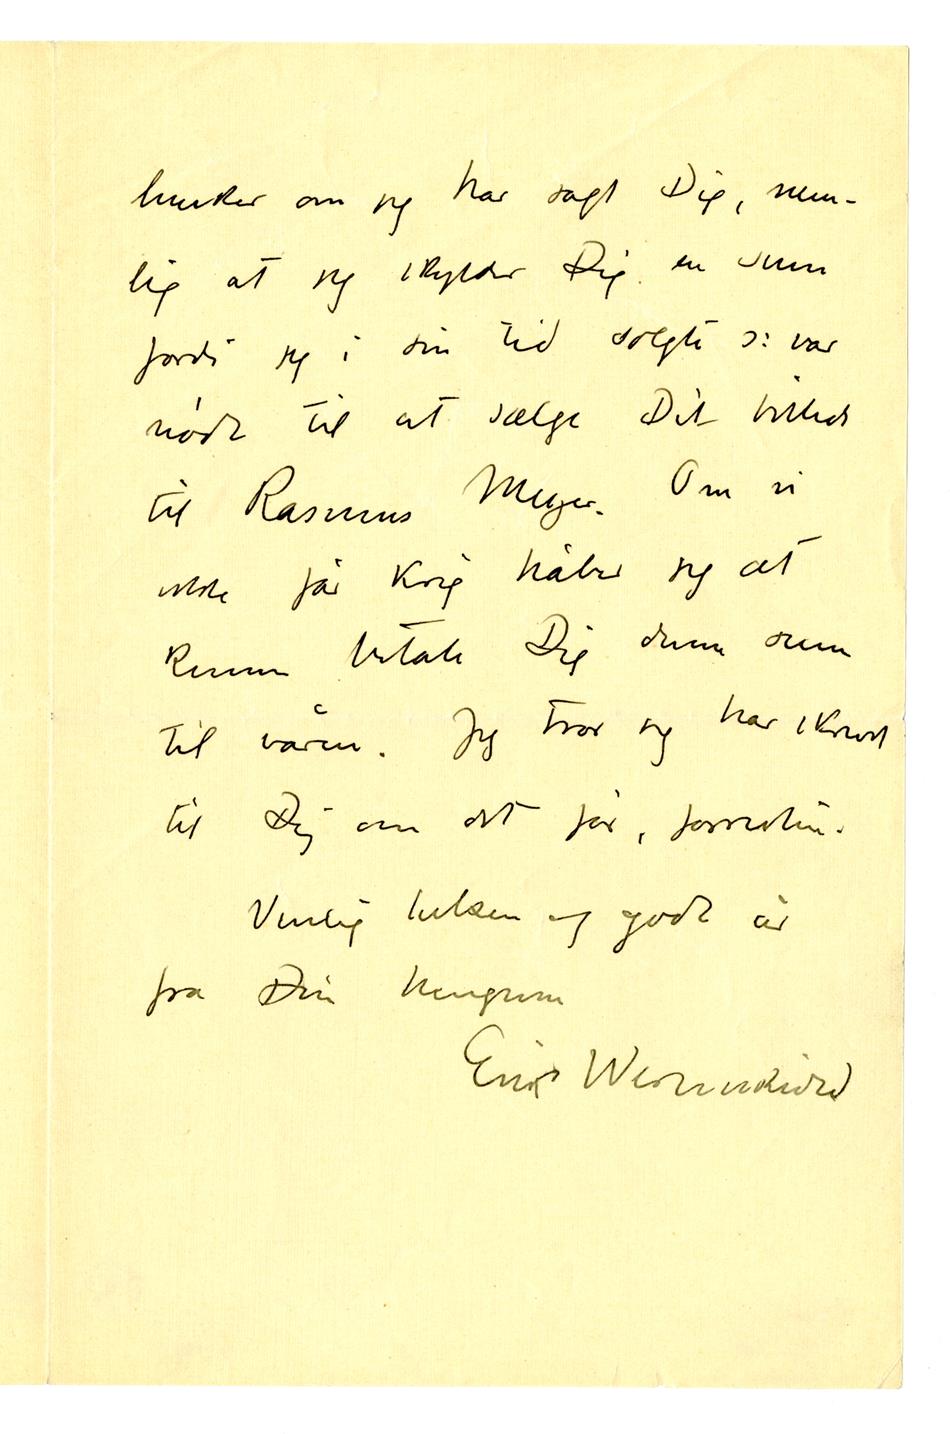 husker om jeg har sagt Dig, nem-
lig at jeg skylder Dig en sum
fordi jeg i sin tid solgte ɔ: var
nødt til at sælge Dit billede
til Rasmus Meyer. Om vi
ikke får krig håber jeg at
kunne betale Dig denne sum
til våren. Jeg tror jeg har skrevet
til Dig om det før, forresten.
Venlig hilsen og godt år
fra Din hengivne
Erik Werenskiold